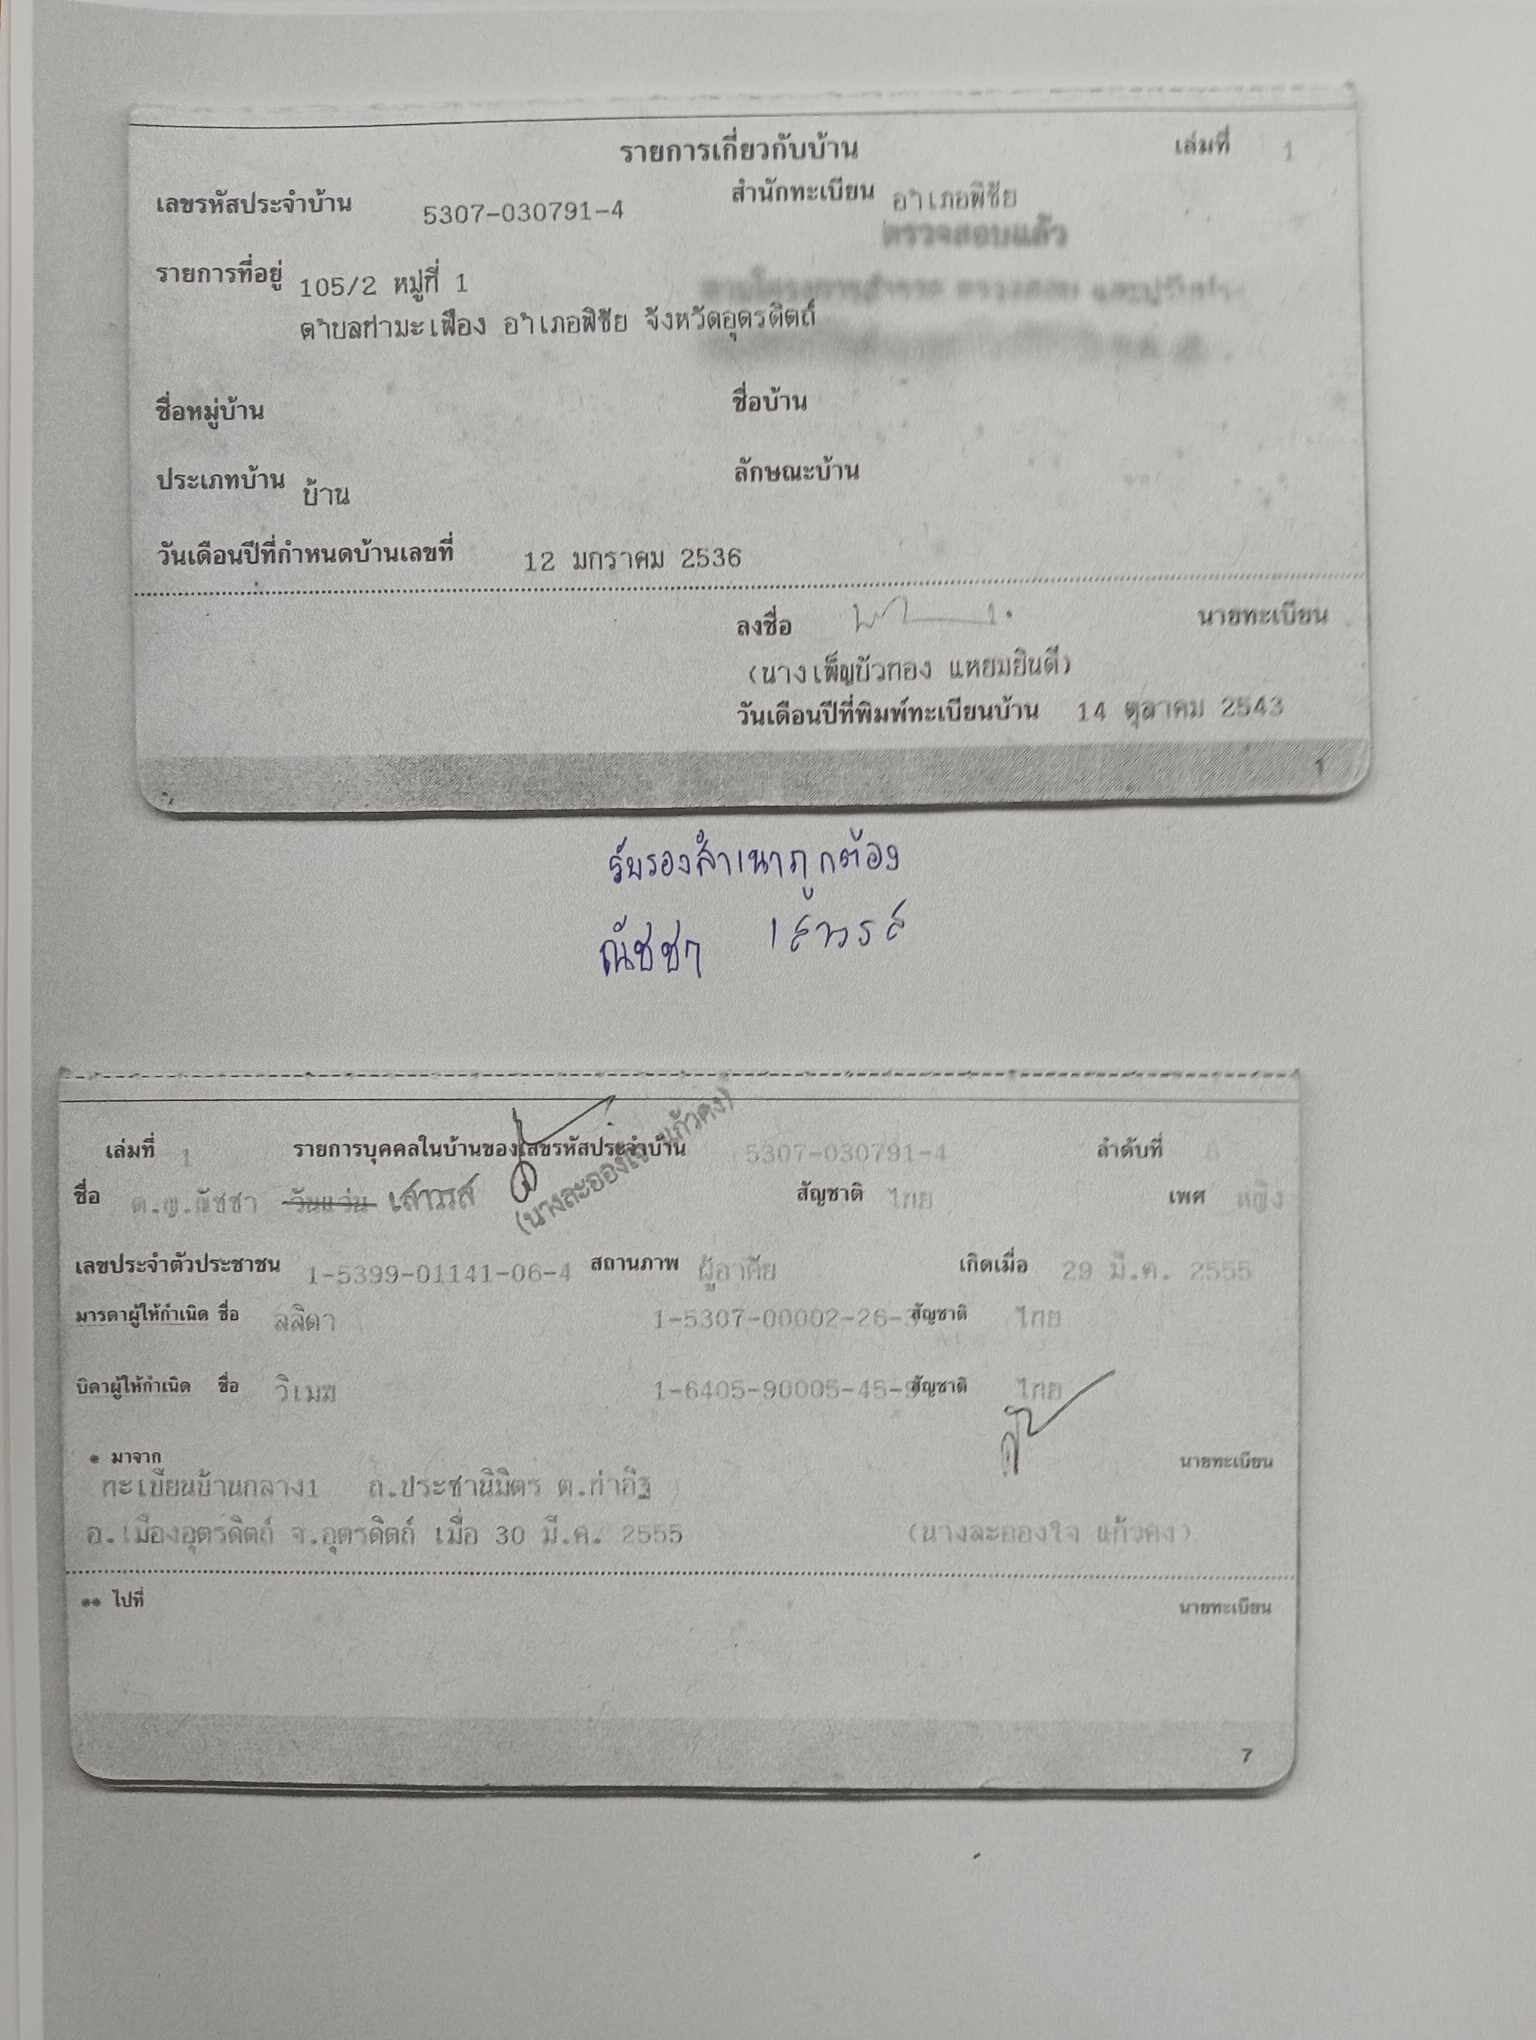 รายการเกี่ยวกับบ้าน เล่มที่ 1
เลขรหัสประจำบ้าน 5307-030791-4 สำนักทะเบียน อำเภอพิชัย
ตรวจสอบแล้ว
รายการที่อยู่ 105/2 หมู่ที่ 1
ตำบลท่ามะเฟือง อำเภอพิชัย จังหวัดอุตรดิตถ์
ชื่อหมู่บ้าน ชื่อบ้าน
ประเภทบ้าน บ้าน ลักษณะบ้าน
วันเดือนปีที่กำหนดบ้านเลขที่ 12 มกราคม 2536
ลงชื่อ นายทะเบียน
(นางเพ็ญบัวทอง แหยมยินดี)
วันเดือนปีที่พิมพ์ทะเบียนบ้าน 14 ตุลาคม 2543
1
รับรองสำเนาถูกต้อง
ณัชชา เสาวรส
เล่มที่ 1 รายการบุคคลในบ้านของเลขรหัสประจำบ้าน 5307-030791-4 ลำดับที่
ชื่อ ด.ญ.ณัชชา วันแว่น เสาวรส (นางละอองใจ แก้วคง) สัญชาติ ไทย เพศ หญิง
เลขประจำตัวประชาชน 1-5399-01141-06-4 สถานภาพ ผู้อาศัย เกิดเมื่อ 29 มี.ค. 2555
มารดาผู้ให้กำเนิด ชื่อ ลลิดา 1-5307-00002-26-3 สัญชาติ ไทย
บิดาผู้ให้กำเนิด ชื่อ วิเมฆ 1-6405-90005-45-9 สัญชาติ ไทย
* มาจาก นายทะเบียน
ทะเบียนบ้านกลาง1 ถ.ประชานิมิตร ต.ท่าอิฐ
อ.เมืองอุตรดิตถ์ จ.อุตรดิตถ์ เมื่อ 30 มี.ค. 2555 (นางละอองใจ แก้วคง)
** ไปที่ นายทะเบียน
7